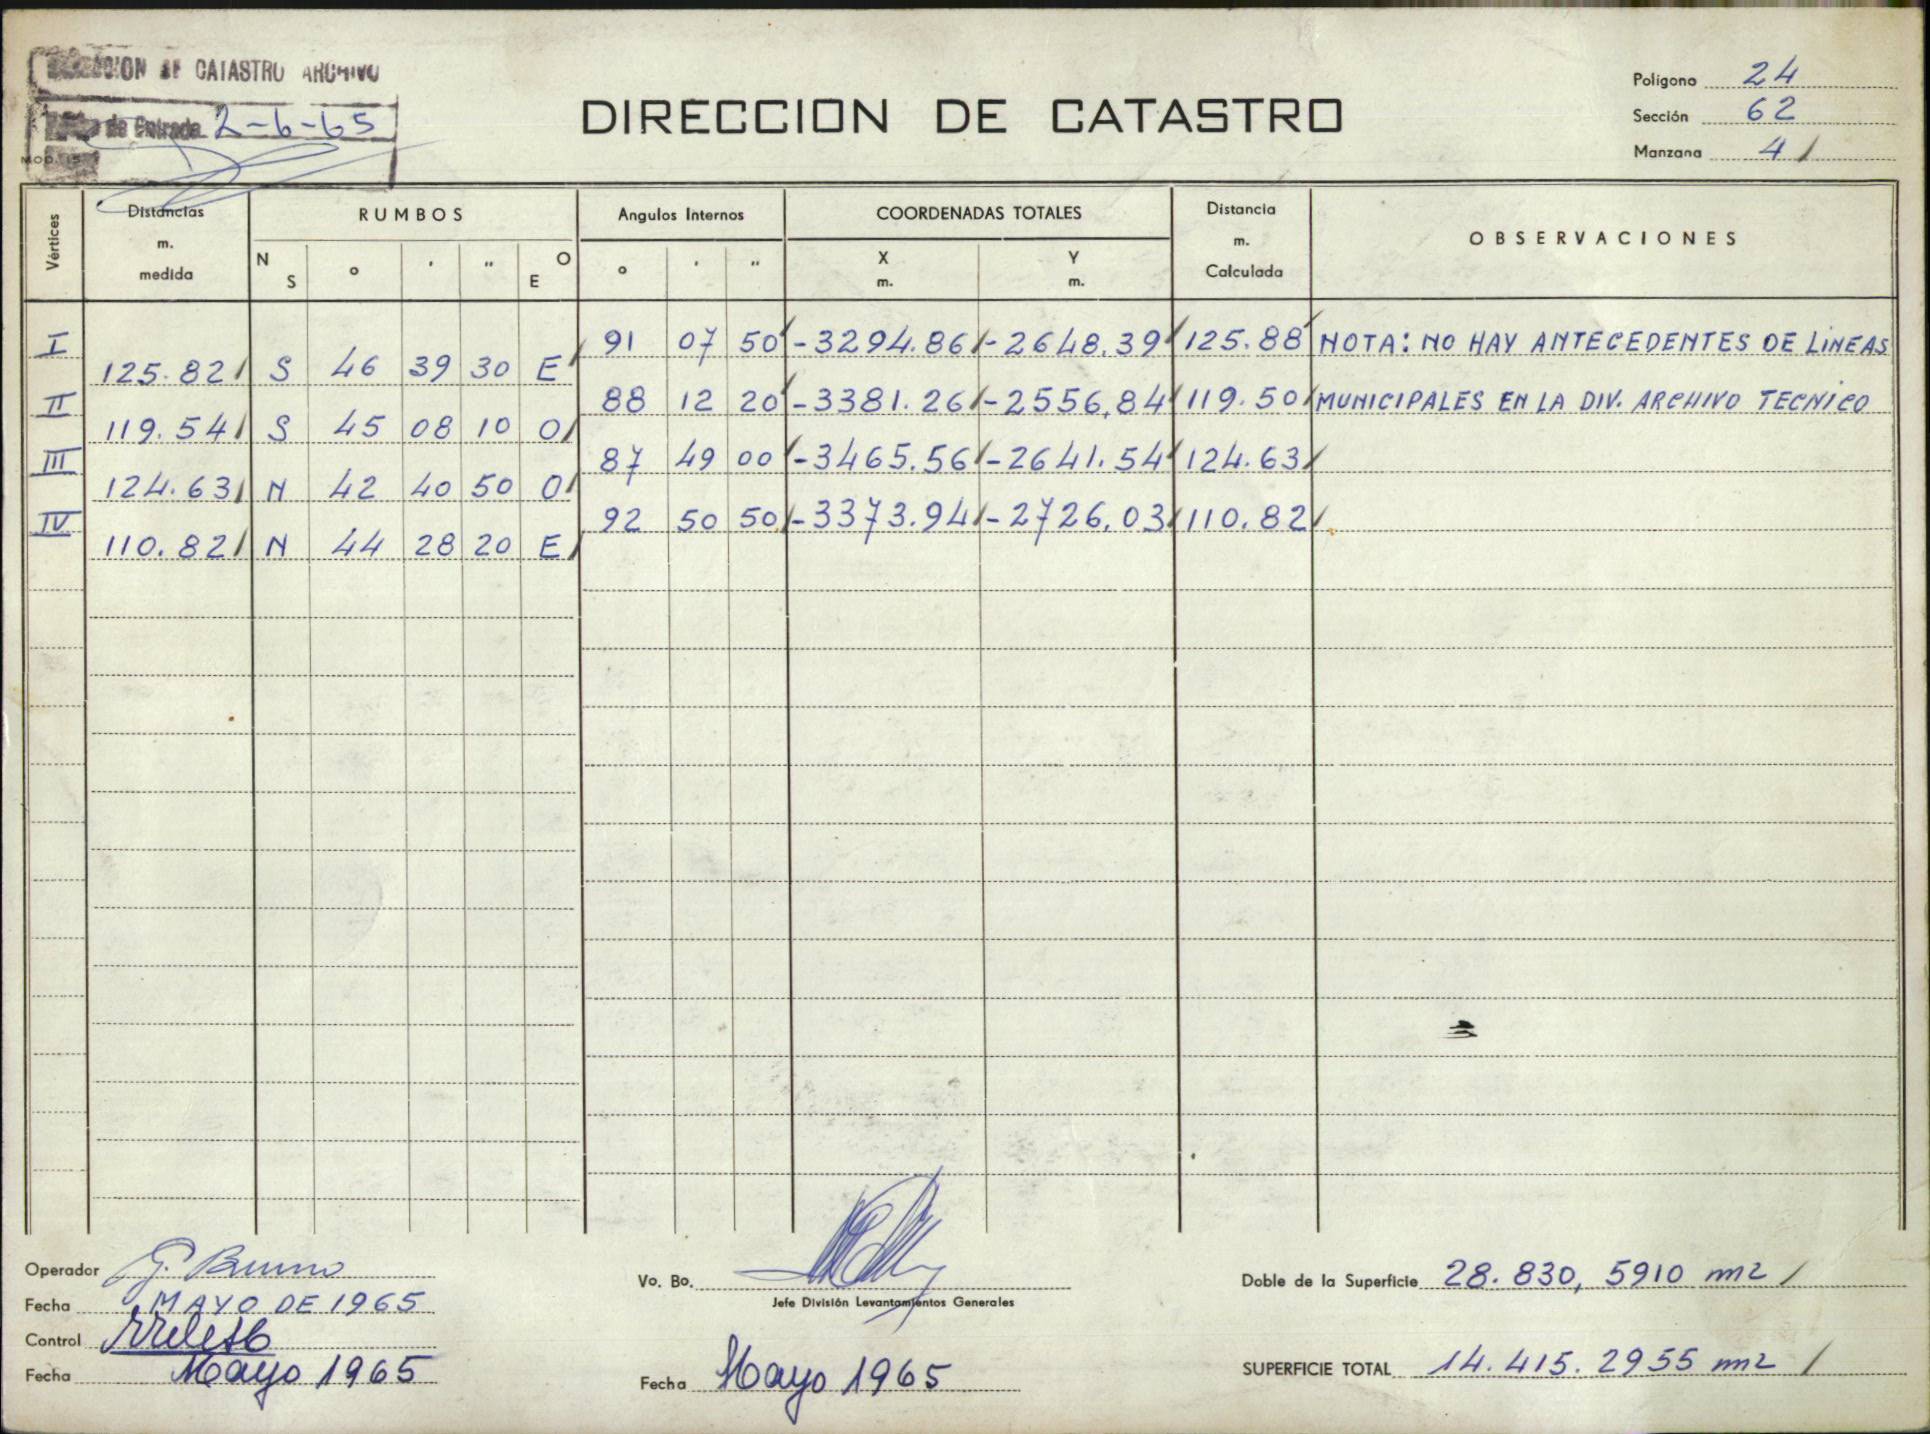 DIRECCION DE CATASTRO ARCHIVO
de Entrada 2-6-65
MOD. 15
DIRECCION DE CATASTRO
Polígono 24
Sección 62
Manzana 4 /
Vértices
Distancias m. medida
RUMBOS
N S ° ' " O E
Angulos Internos
° ' "
COORDENADAS TOTALES
X m. Y m.
Distancia m. Calculada
OBSERVACIONES
I 91 07 50 -3294.86 -2648.39 125.88 NOTA: NO HAY ANTECEDENTES DE LINEAS
125.82 S 46 39 30 E
II 88 12 20 -3381.26 -2556,84 119.50 MUNICIPALES EN LA DIV. ARCHIVO TECNICO
119.54 S 45 08 10 O
III 87 49 00 -3465.56 -2641.54 124.63
124.63 N 42 40 50 O
IV 92 50 50 -3373.94 -2726,03 110.82
110.82 N 44 28 20 E
Operador G. Bruno
Fecha MAYO DE 1965
Control
Fecha Mayo 1965
Vo. Bo.
Jefe División Levantamientos Generales
Fecha Mayo 1965
Doble de la Superficie 28.830,5910 m2 /
SUPERFICIE TOTAL 14.415.2955 m2 /